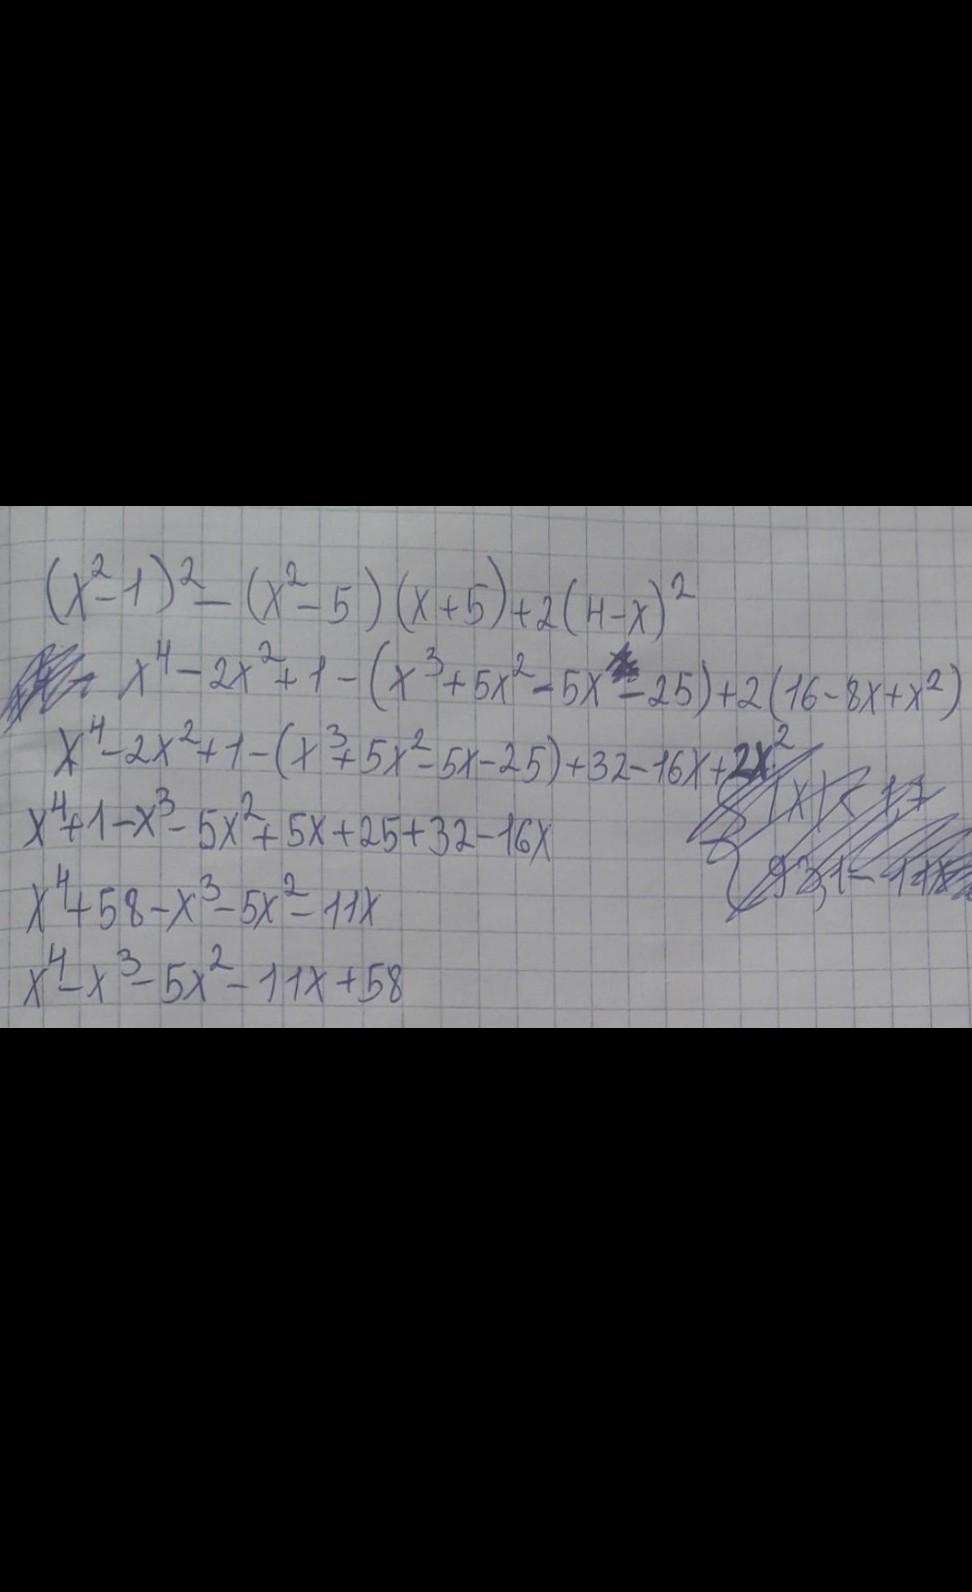 (x²-1)²-(x²-5)(x+5)+2(4-x)²
x⁴-2x²+1-(x³+5x²-5x-25)+2(16-8x+x²)
x⁴-2x²+1-(x³+5x²-5x-25)+32-16x+2x²
x⁴+1-x³-5x²+5x+25+32-16x
x⁴+58-x³-5x²-11x
x⁴-x³-5x²-11x+58